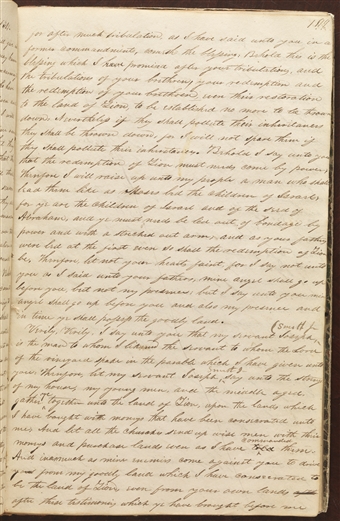 189
for after much tribulation as I have said unto you in a
former commandment, cometh the blessing. Behold this is the
blessing which I have promised after your tribulations, and
the tribulations of your brethren; your redemption and
the redemption of your brethren, even their restoration
to the land of Zion, to be established no more to be thrown
down. Nevertheless if they shall pollute their inheritances
they shall be thrown down; for I will not spare them if
they shall pollute their inheritances. Behold I say unto you
that the redemption of Zion must needs come by power;
therefore I will raise up unto my people a man who shall
lead them like as Moses led the children of Israel.
for ye are the children of Israel and of the seed of
Abraham, and ye must needs be led out of bondage by
power and with a stretched out arm; and as your fathers
were led at the first even so shall the redemption of Zion
be. Therefore let not your hearts faint for I say not unto
you as I said unto your fathers, mine angel shall go up
before you, but not my presence; but I say unto you mine
angel shall go up before you and also my presence and
in time ye shall possess the goodly land.
Smith Jr
Verily, Verily, I say unto you that my servant Joseph
is the man to whom I likened the servant to whom the Lord
of the vineyard spake in the parable which I have given unto
you. Therefore let my servant Joseph Smith J. say unto the strength
of my house, my young men, and the middle aged
gather together unto the land of Zion, upon the lands which
I have bought with moneys that have been consecrated unto
me; And let all the churches send up wise men with their
moneys and purchase lands even as I have commanded told them.
And inasmuch as mine enemies come against you to drive
you from my goodly land which I have consecrated to
be the land of Zion, even from your own lands
after these testimonies which ye have brought before me